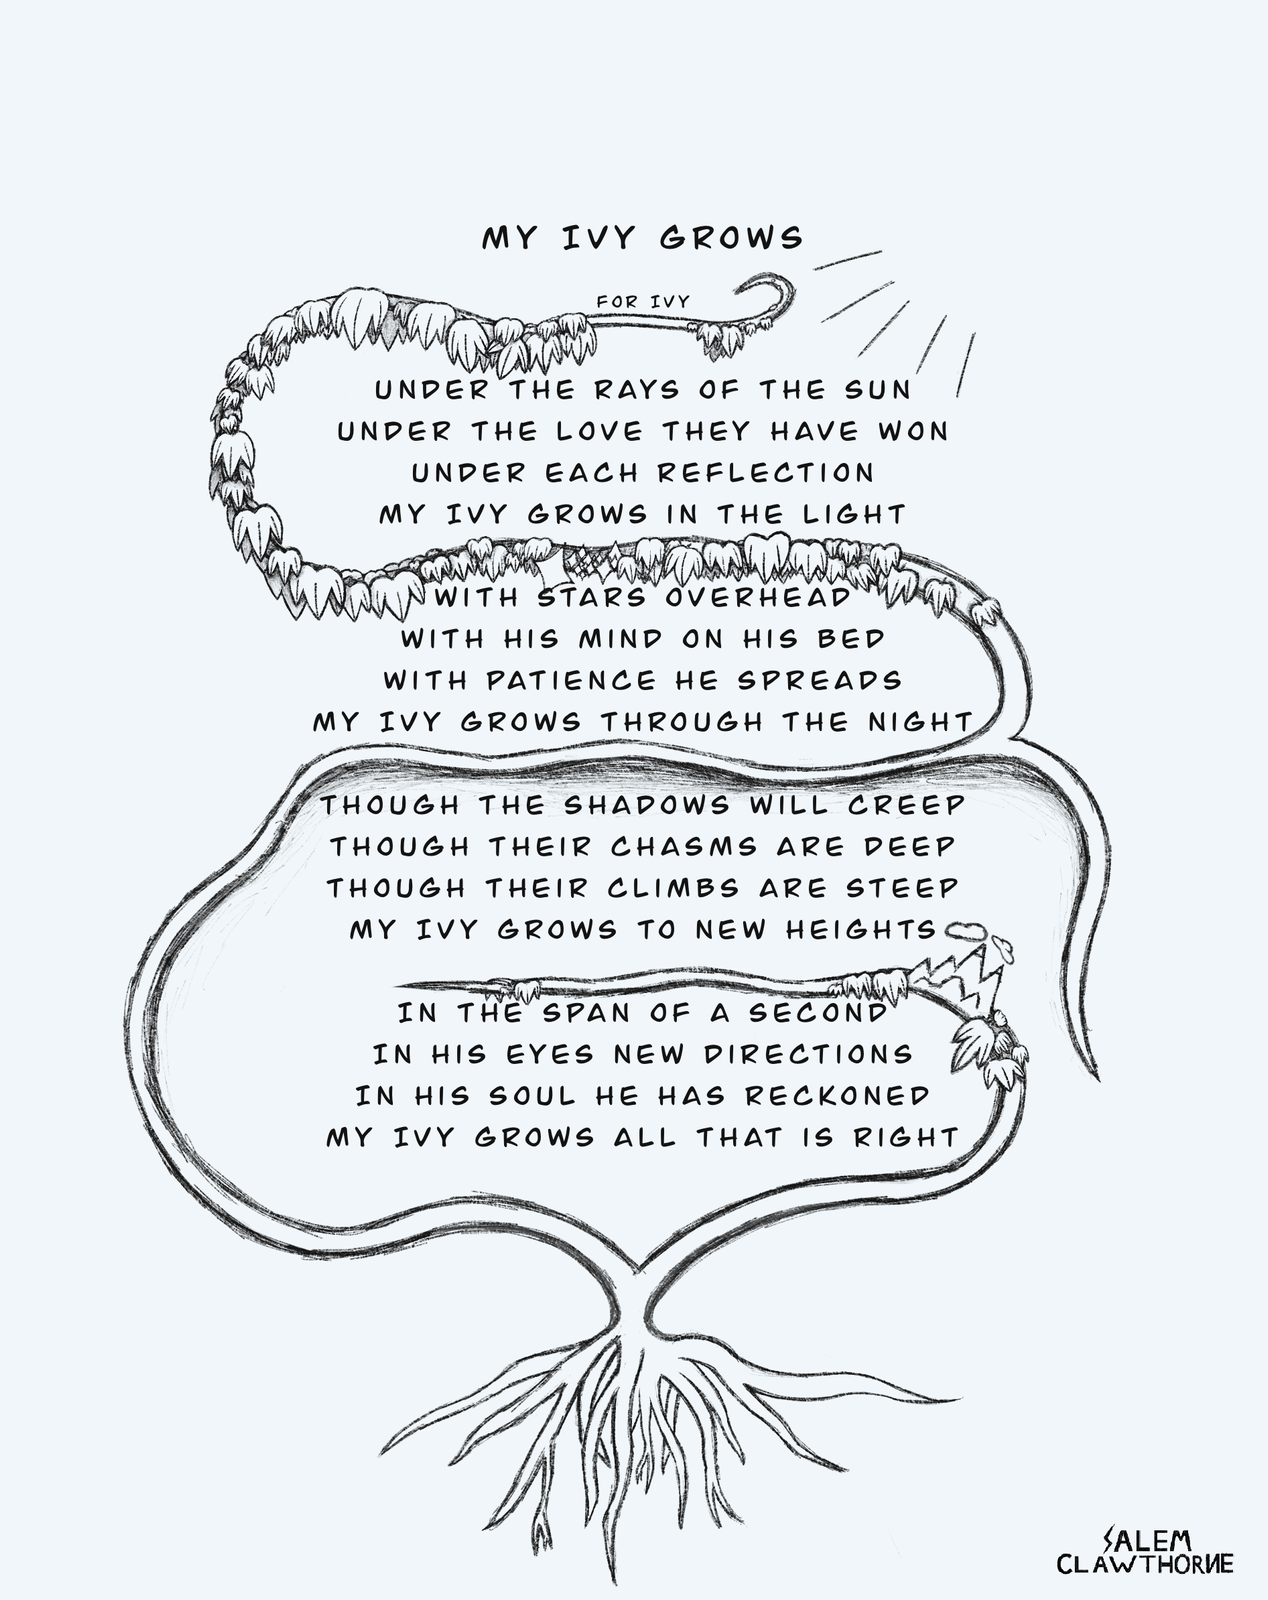 MY IVY GROWS
FOR IVY
UNDER THE RAYS OF THE SUN
UNDER THE LOVE THEY HAVE WON
UNDER EACH REFLECTION
MY IVY GROWS IN THE LIGHT
WITH STARS OVERHEAD
WITH HIS MIND ON HIS BED
WITH PATIENCE HE SPREADS
MY IVY GROWS THROUGH THE NIGHT
THOUGH THE SHADOWS WILL CREEP
THOUGH THEIR CHASMS ARE DEEP
THOUGH THEIR CLIMBS ARE STEEP
MY IVY GROWS TO NEW HEIGHTS
IN THE SPAN OF A SECOND
IN HIS EYES NEW DIRECTIONS
IN HIS SOUL HE HAS RECKONED
MY IVY GROWS ALL THAT IS RIGHT
SALEM
CLAWTHORNE